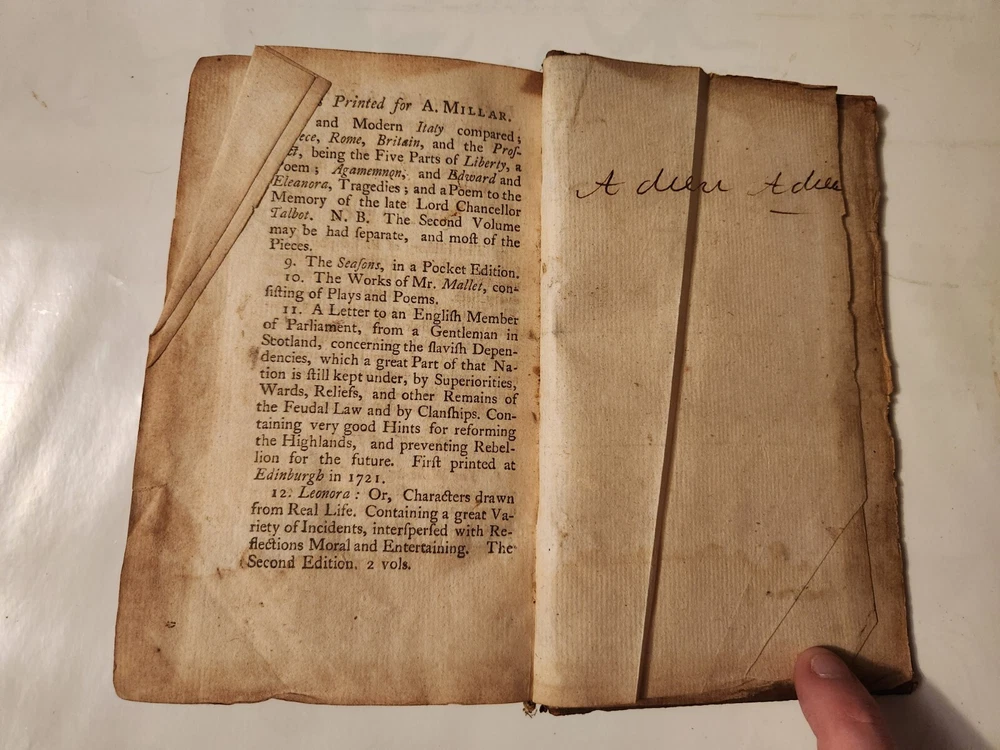 Printed for A. MILLAR.
and Modern Italy compared;
ece, Rome, Britain, and the Proſ-
ct, being the Five Parts of Liberty, a
Poem; Agamemnon, and Edward and
Eleanora, Tragedies; and a Poem to the
Memory of the late Lord Chancellor
Talbot. N. B. The Second Volume
may be had ſeparate, and moſt of the
Pieces.
9. The Seaſons, in a Pocket Edition.
10. The Works of Mr. Mallet, con-
ſiſting of Plays and Poems.
11. A Letter to an Engliſh Member
of Parliament, from a Gentleman in
Scotland, concerning the ſlaviſh Depen-
dencies, which a great Part of that Na-
tion is ſtill kept under, by Superiorities,
Wards, Reliefs, and other Remains of
the Feudal Law and by Clanſhips. Con-
taining very good Hints for reforming
the Highlands, and preventing Rebel-
lion for the future. Firſt printed at
Edinburgh in 1721.
12. Leonora: Or, Characters drawn
from Real Life. Containing a great Va-
riety of Incidents, interſperſed with Re-
flections Moral and Entertaining. The
Second Edition. 2 vols.